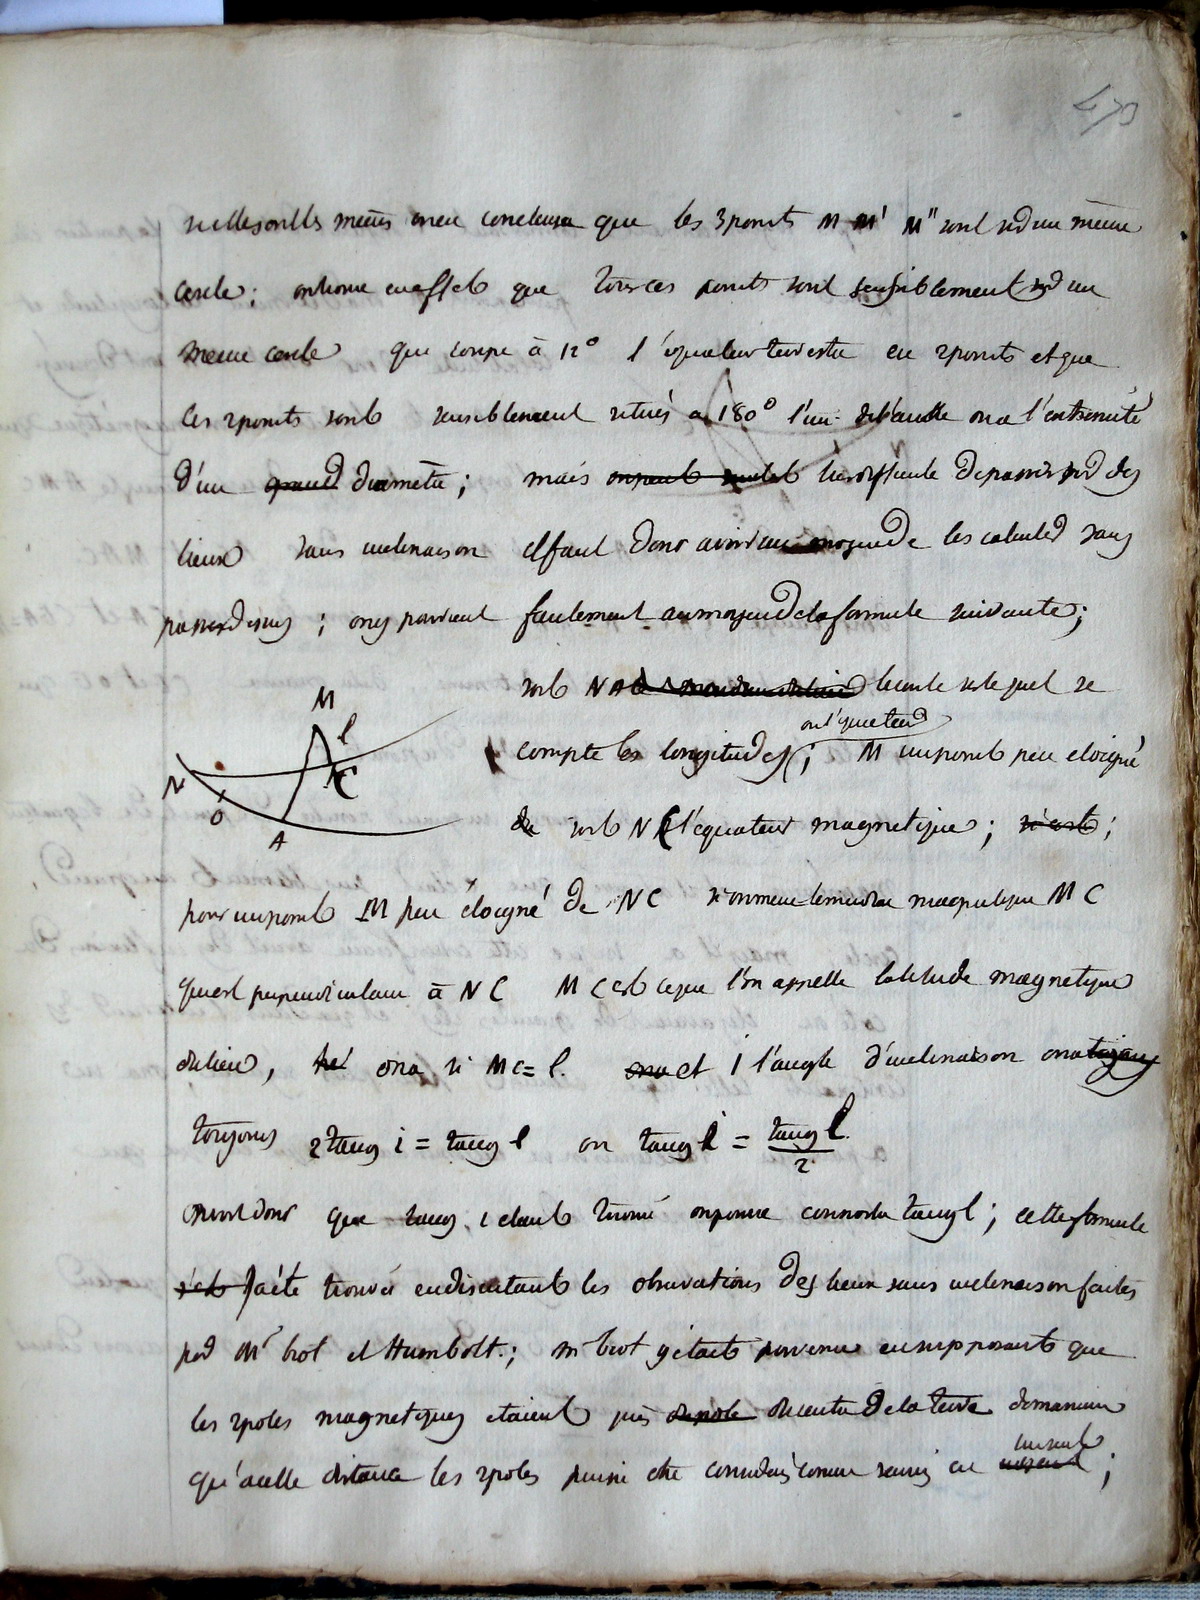 470
si elles ont les mêmes on en conclura que les 3 points M M' M" sont sur un même
cercle ; on trouve en effet que tous ces points sont sensiblement sur un
meme cercle qui coupe à 12° l'équateur terrestre en 2 points et que
les 2 points sont sensiblement situés a 180° l'un de l'autre ou a l'extremité
d'un grand diametre ; mais on peut la difficulté de passer sur des
lieux sans inclinaison il faut donc avoir un moyen de les calculer sans
passer dessus ; on y parvient facilement au moyen de la formule suivante ;
soit NAO le cercle sur lequel se
ou l'équateur
compte les longitudes ; M un point peu eloigné
de soit NC l'equateur magnetique ; ;
pour un point M peu éloigné de NC si on mene le méridien magnetique MC
qui est perpendiculaire à NC MC est ce que l'on appelle latitude magnetique
du lieu, on a si MC = l. ona et i l'angle d'inclinaison on a toujours
toujours 2 tang i = tang l ou tang i = tang l / 2
on voit donc que tang i etant trouvé on pourra connoitre tang l ; cette formule
s'est a été trouvée en discutant les observations des lieux sans inclinaison faites
par Mr biot et Humbolt. ; Mr biot y etait parvenu en supposant que
les 2 poles magnetiques etaient près du pole du centre de la terre de maniere
un seul
qu'a celle distance les 2 poles puisse etre considerés comme reunis en ;
M
l
N
C
O
A